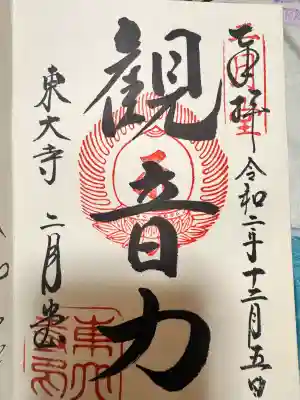 奉拝 令和二年十二月五日
観音力
東大寺 二月堂